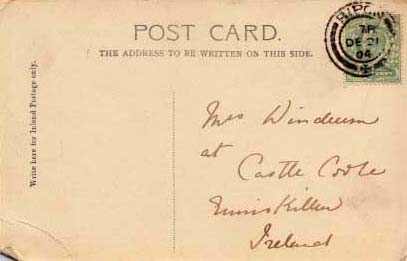 POST CARD.
THE ADDRESS TO BE WRITTEN ON THIS SIDE.
Write here for Inland Postage only.
RIPON
7 P
DE 21
04
Mrs
at
Castle Coole
Enniskillen
Ireland